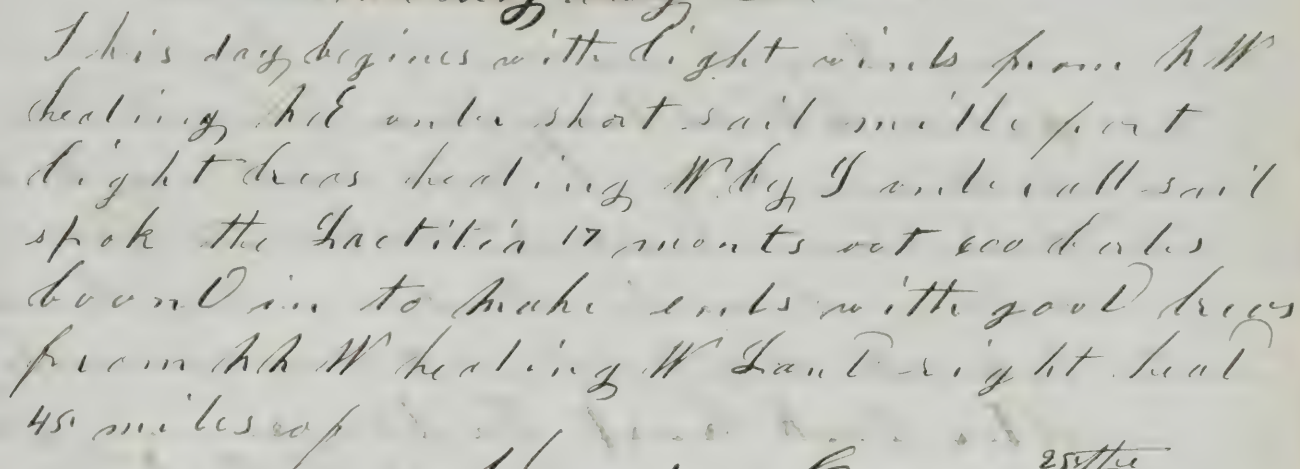 This day begines with light winds from N W
heading N E under short sail midle part
light brees heading W by S under all sail
spok the Laetitia 17 monts out 600 barles
bound in to make ends with good brees
from N N W heading W Land right head
45 miles of
25the